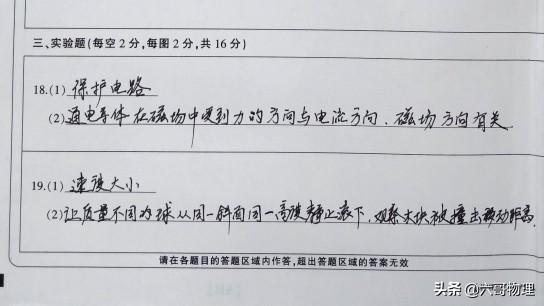 三、实验题(每空2分,每图2分,共16分)
18.(1) 保护电路
(2)通电导体在磁场中受到力的方向与电流方向、磁场方向有关
19.(1) 速度大小
(2)让质量不同的球从同一斜面同一高度静止滚下,观察木块被撞击移动距离
请在各题目的答题区域内作答,超出答题区域的答案无效
头条 @六哥物理